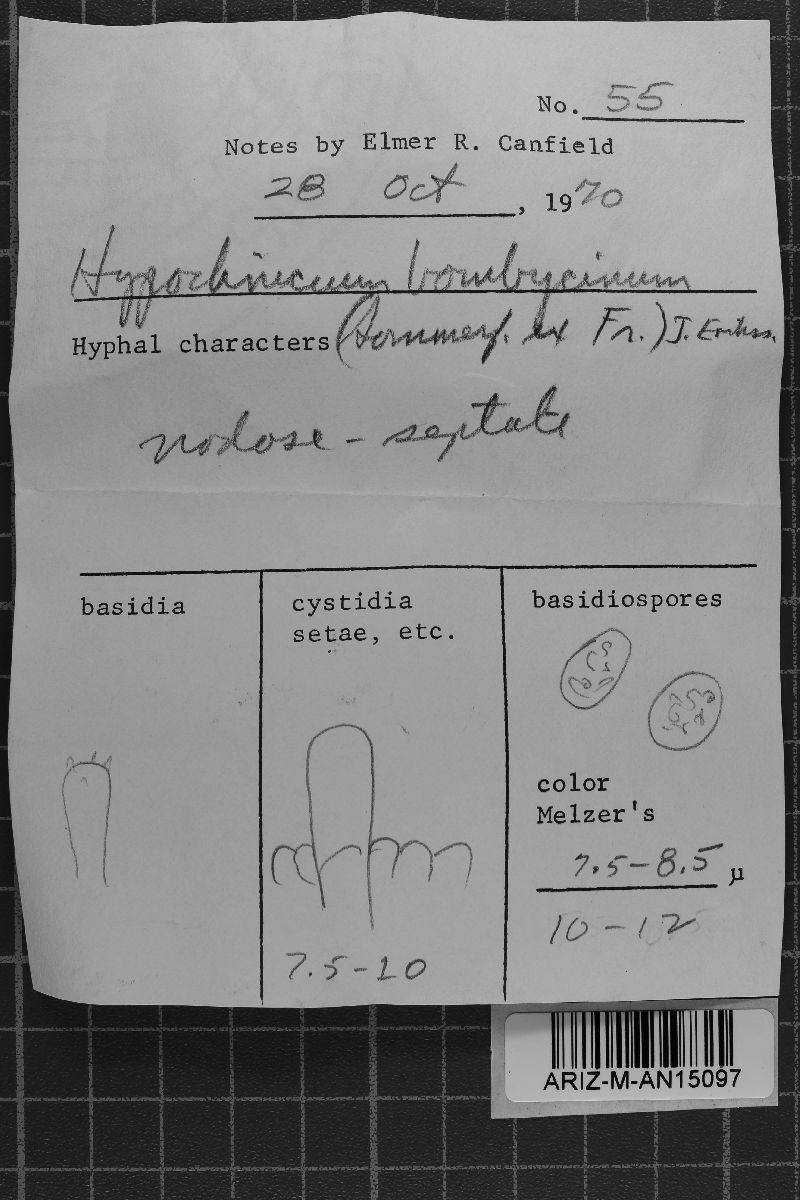 No. 55
Notes by Elmer R. Canfield
28 Oct, 1970
Hypochnicium bombycinum
Hyphal characters (Sommerf. ex Fr.) J. Erikss.
nodose-septate
basidia
cystidia
setae, etc.
7.5-10
basidiospores
color
Melzer's
7.5-8.5 µ
10-12
ARIZ-M-AN15097